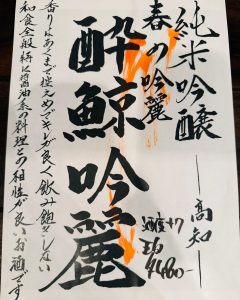 純米吟醸
春の吟麗
酔鯨吟麗
高知
酒度+7
香りはあくまで控えめでキレが良く飲み飽きしない
和食全般特に醤油系の料理との相性が良いお酒です